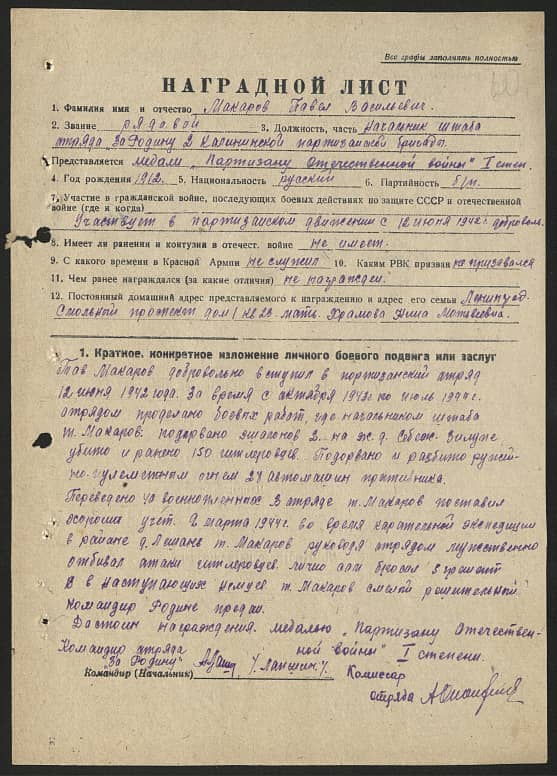 Все графы заполнять полностью
НАГРАДНОЙ ЛИСТ
1. Фамилия имя и отчество Макаров Павел Васильевич.
2. Звание рядовой 3. Должность, часть Начальник штаба
отряда За Родину 2 Калининской партизанской бригады.
Представляется медали „Партизану Отечественной войны" I степ.
4. Год рождения 1912. 5. Национальность русский 6. Партийность б/п.
7. Участие в гражданской войне, последующих боевых действиях по защите СССР и отечественной
войне (где и когда)
Участвует в партизанском движении с 12 июня 1942 г. доброволь.
8. Имеет ли ранения и контузии в отечест. войне не имеет.
9. С какого времени в Красной Армии не служил 10. Каким РВК призван не призывался
11. Чем ранее награждался (за какие отличия) не награжден.
12. Постоянный домашний адрес представляемого к награждению и адрес его семьи Ленинград
Смольный проспект дом 1 кв 23 мать. Храмова Нина Матвеевна.
1. Краткое, конкретное изложение личного боевого подвига или заслуг
Тов Макаров добровольно вступил в партизанский отряд
12 июня 1942 года. За время с октября 1943 г по июль 1944 г.
отрядом проделано боевых работ, где начальником штаба
т. Макаров: подорвано эшалонов 2 на ж.д. Себеж Зилупе
убито и ранено 150 гитлеровцев. Подорвано и разбито ружей-
но-пулеметным огнем 27 автомашин противника.
Переведено 40 военнопленных В отряде т. Макаров поставил
хорошии учет. 2 марта 1944 г. во время карательной экспедиции
в районе д. т. Макаров руководя отрядом мужественно
отбивал атаки гитлеровцев. лично сам бросал 3 гранаты
в наступающих немцев т. Макаров смелой решительный
командир Родине предан.
Достоин награждения. медалью „Партизану Отечествен-
Командир отряда ной войны" I степени.
"За Родину" /Лапшин/
Командир (Начальник) Комиссар
отряда